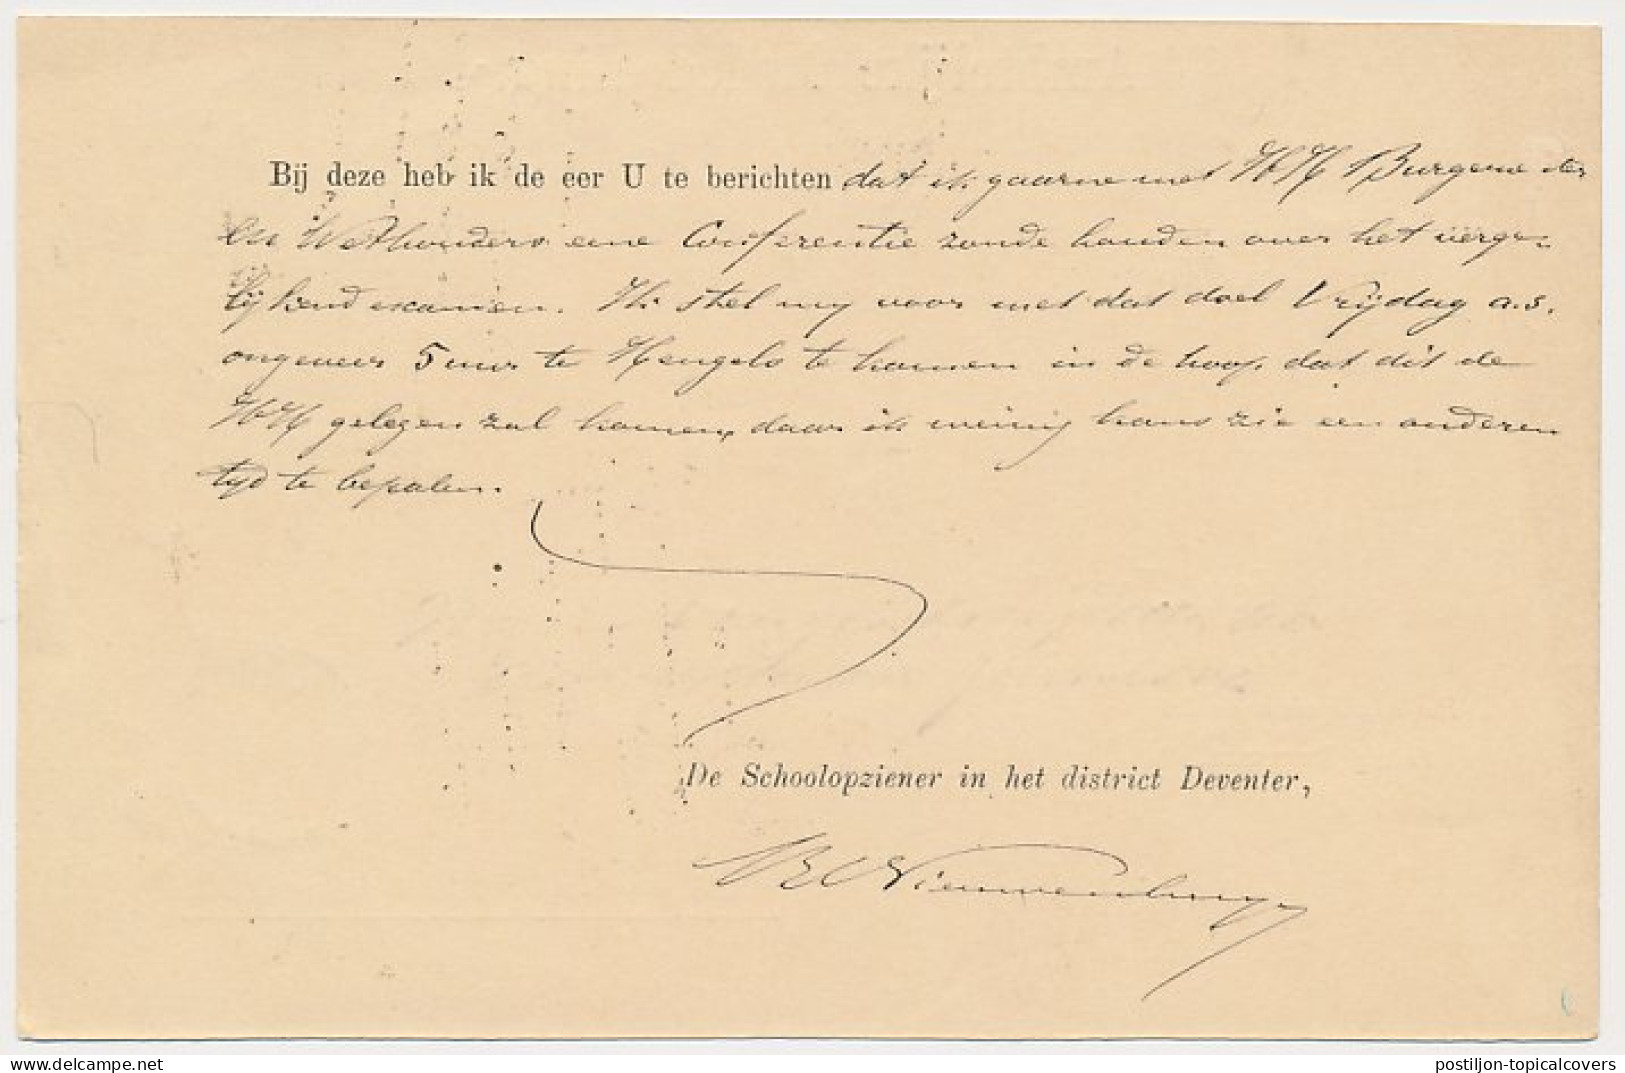 Bij deze heb ik de eer U te berichten dat ik gaarne met HH Burgemeester
en Wethouders eene Conferentie zoude houden over het verge-
lijkend examen. Ik stel my voor met dat doel Vrijdag a.s.
ongeveer 5 uur te Hengelo te komen in de hoop dat dit de
HH gelegen zal komen, daar ik weinig kans zie een anderen
tyd te bepalen.
De Schoolopziener in het district Deventer,
postiljon-topicalcovers
www.delcampe.net